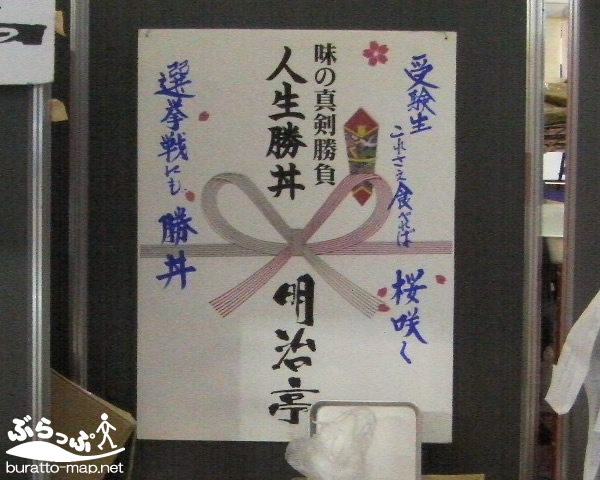 受験生
これさえ食べせば
桜咲く
味の真剣勝負
人生勝丼
明治亭
選挙戦にも
勝丼
ぶらっぷ
buratto-map.net